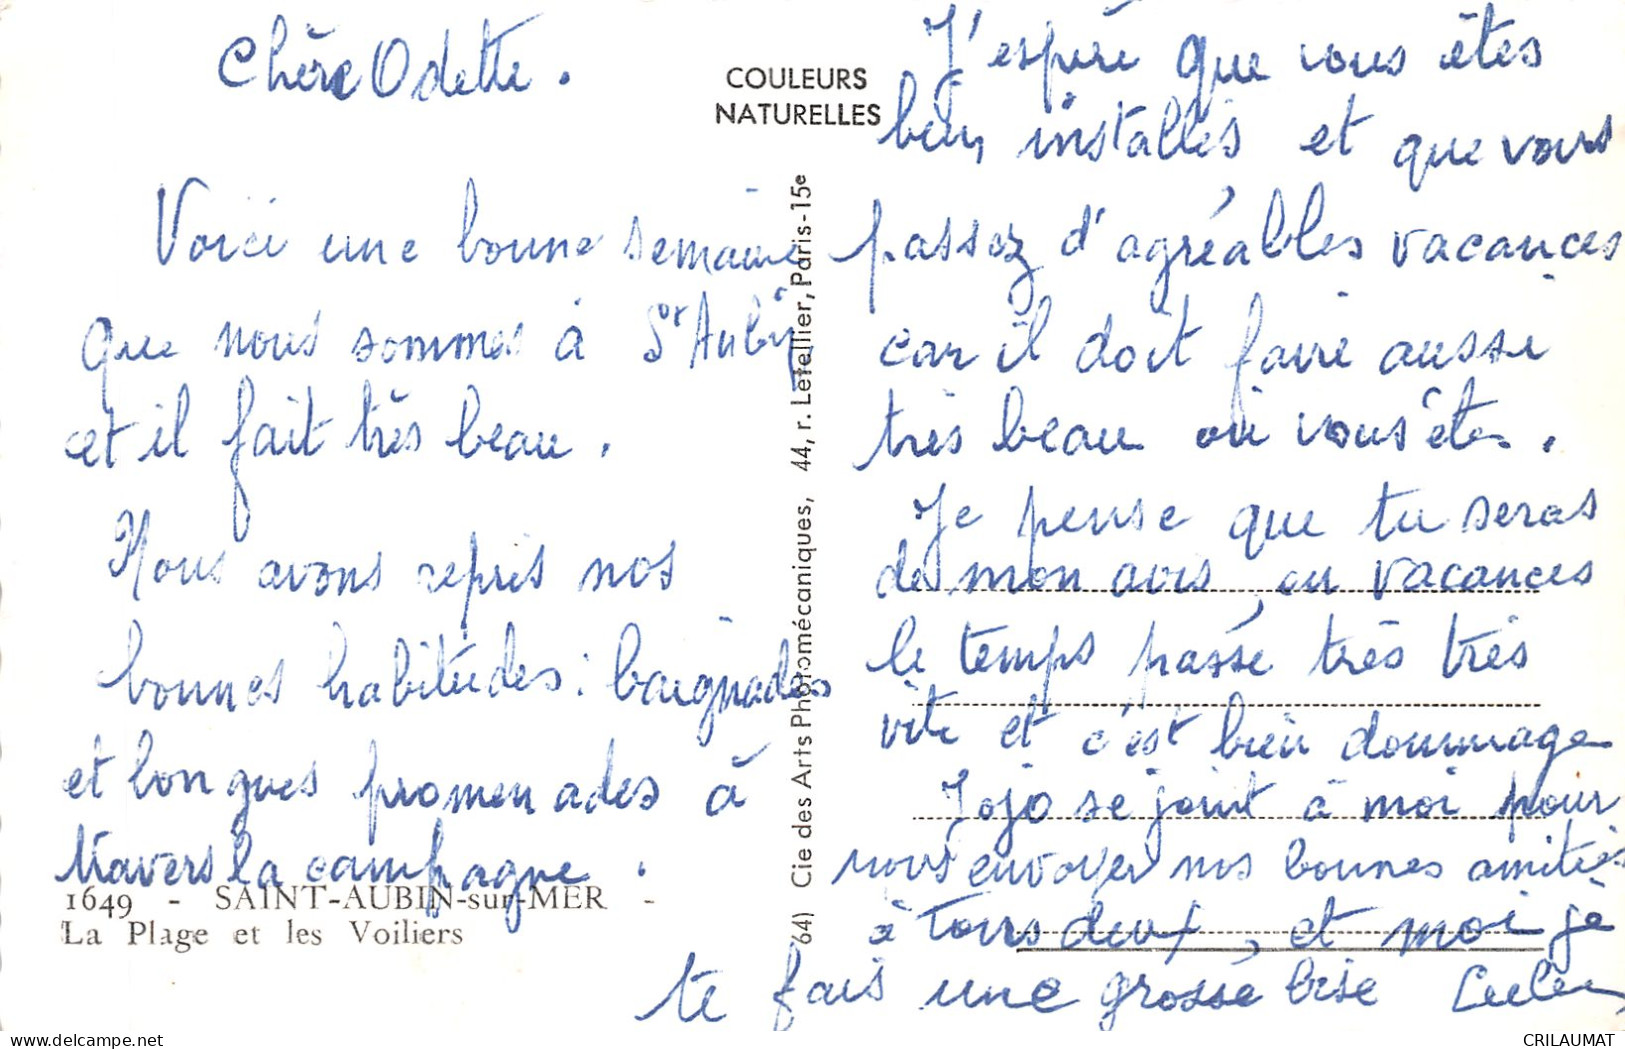 Chère Odette.
Voici une bonne semaine
que nous sommes à St Aubin
et il fait très beau.
Nous avons repris nos
bonnes habitudes : baignades
et longues promenades à
travers la campagne.
1649 - SAINT-AUBIN-sur-MER -
La Plage et les Voiliers
COULEURS
NATURELLES
64) Cie des Arts Photomécaniques, 44, r. Letellier, Paris-15e
J'espère que vous êtes
bien installés et que vous
passez d'agréables vacances
car il doit faire aussi
très beau où vous êtes.
Je pense que tu seras
de mon avis, en vacances
le temps passe très très
vite et c'est bien dommage
Jojo se joint à moi pour
vous envoyer nos bonnes amitiés
à tous deux, et moi je
te fais une grosse bise
delcampe.net
CRILAUMAT